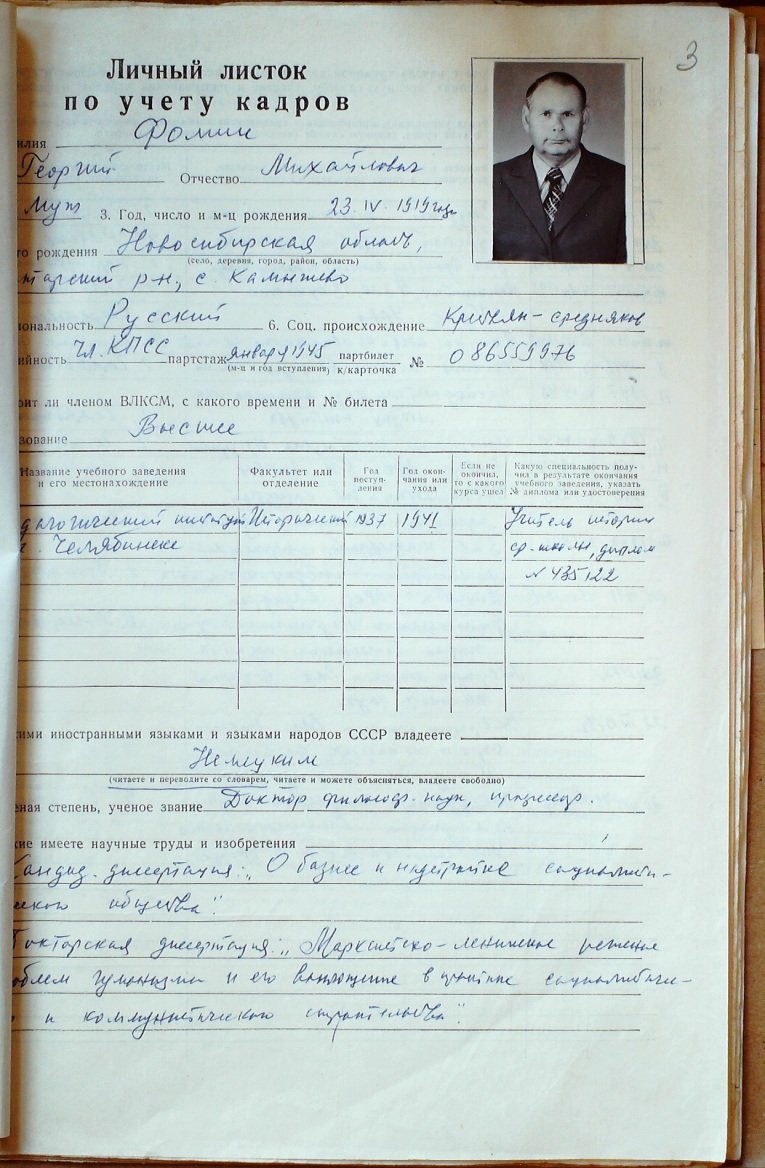 3
Личный листок
по учету кадров
илия Фомин
Георгий Отчество Михайлович
муж 3. Год, число и м-ц рождения 23. IV. 1919 года
то рождения Новосибирская область,
(село, деревня, город, район, область)
р-н, с. Камышево
иональность Русский 6. Соц. происхождение Крестьян-средняков
ийность Чл. КПСС партстаж января 1945 партбилет № 08655976
(м-ц и год вступления) к/карточка
оит ли членом ВЛКСМ, с какого времени и № билета
зование Высшее
Название учебного заведения и его местонахождение Факультет или отделение Год поступления Год окончания или ухода Если не окончил, то с какого курса ушел Какую специальность получил в результате окончания учебного заведения, указать № диплома или удостоверения
дагогический институт Исторический 1937 1941 Учитель истории
г. Челябинске ср. школы, диплом
№ 435122
кими иностранными языками и языками народов СССР владеете
Немецким
(читаете и переводите со словарем, читаете и можете объясняться, владеете свободно)
еная степень, ученое звание Доктор философ. наук, профессор.
кие имеете научные труды и изобретения
Кандид. диссертация: „О базисе и надстройке социалисти-
ческого общества".
Докторская диссертация: „Марксистско-ленинское решение
облем гуманизма и его воплощение в практике социалистиче-
и коммунистического строительства".